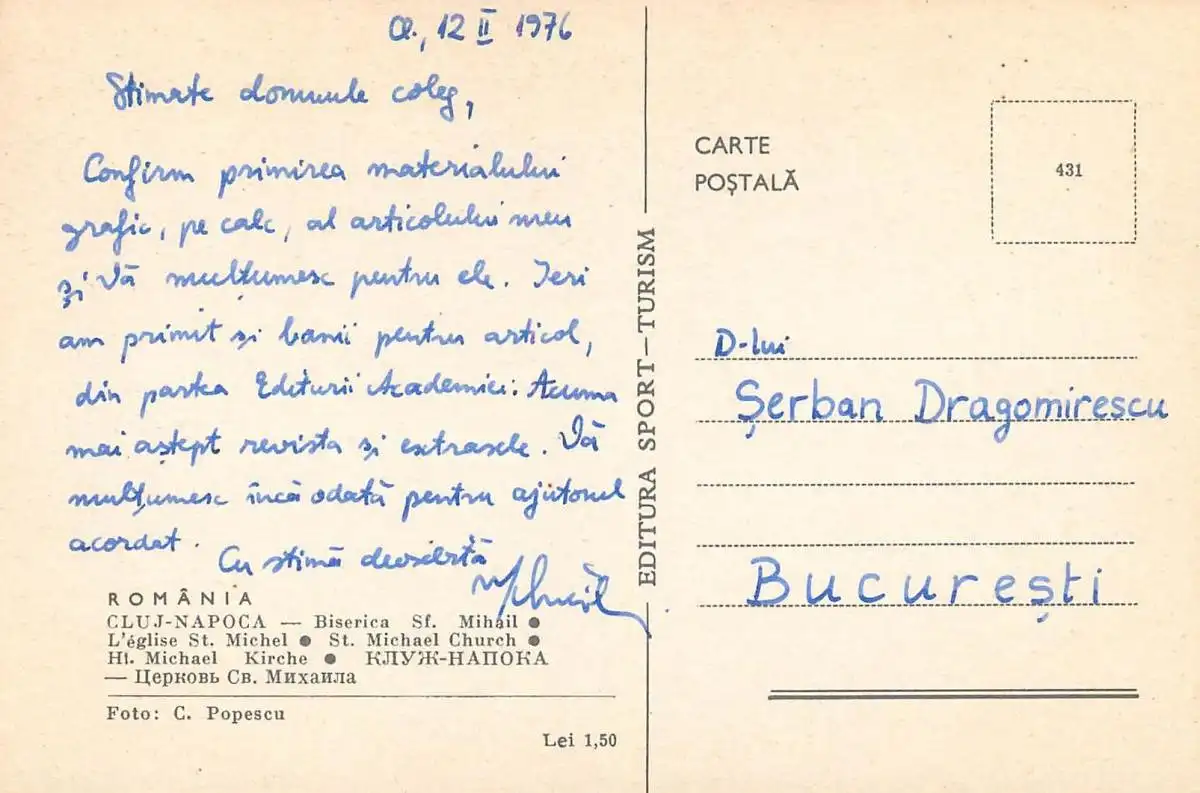 Cl., 12 II 1976
Stimate domnule coleg,
Confirm primirea materialului
grafic, pe calc, al articolului meu
și Vă mulțumesc pentru ele. Ieri
am primit și banii pentru articol,
din partea Editurii Academiei. Acuma
mai aștept revista și extrasele. Vă
mulțumesc încă odată pentru ajutorul
acordat.
Cu stimă deosebită
ROMÂNIA
CLUJ-NAPOCA — Biserica Sf. Mihail ●
L'église St. Michel ● St. Michael Church ●
Hl. Michael Kirche ● КЛУЖ-НАПОКА
— Церковь Св. Михаила
Foto: C. Popescu
Lei 1,50
EDITURA SPORT—TURISM
CARTE
POȘTALĂ
431
D-lui
Șerban Dragomirescu
București